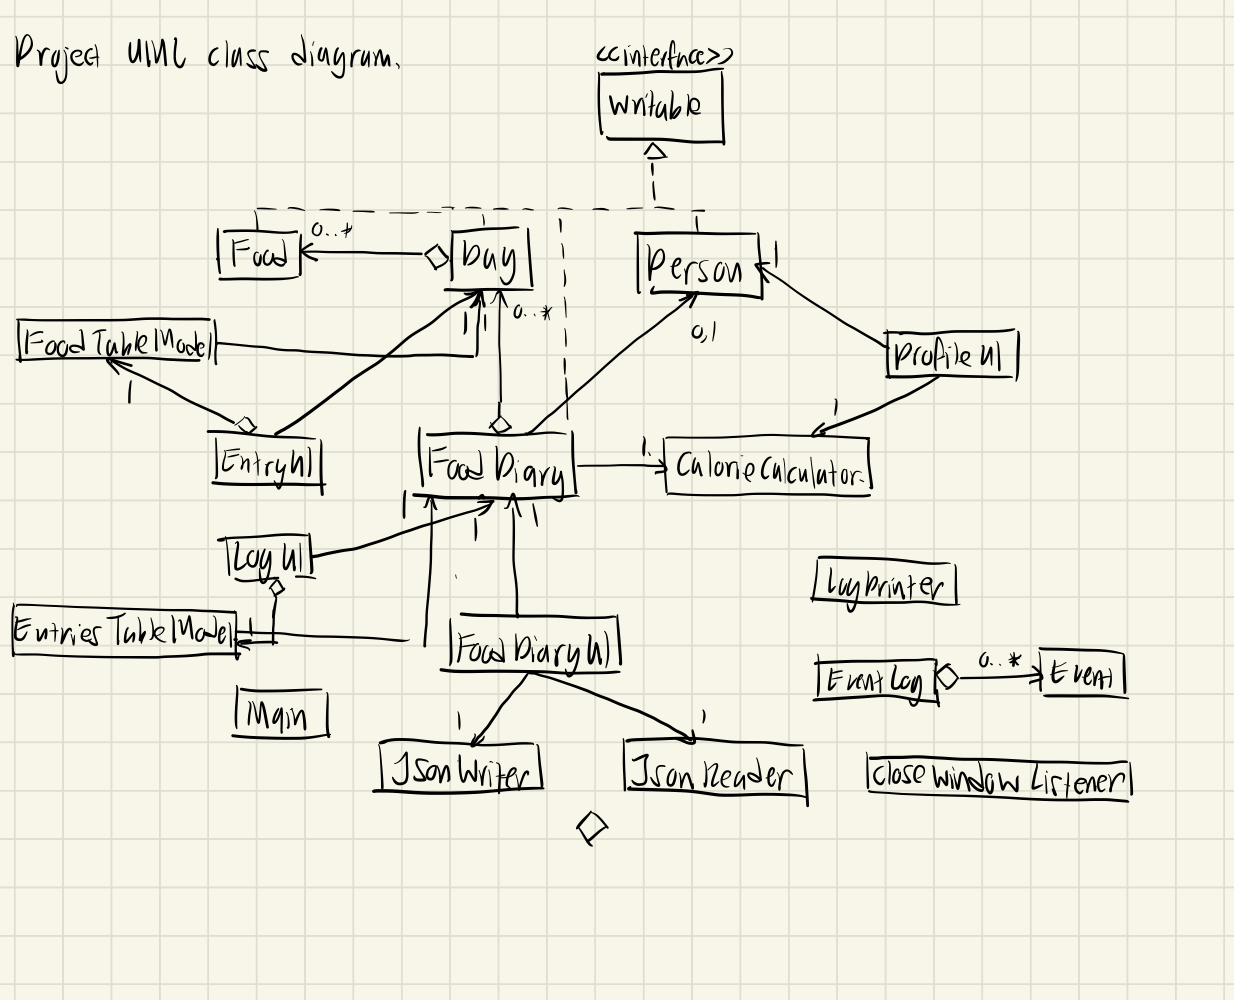 Project UML class diagram.
<<interface>>
Writable
0..*
Food
Day
Person
1
0..*
1
1
0,1
FoodTableModel
ProfileUI
1
1
EntryUI
FoodDiary
1.
CalorieCalculator.
1
1
1
LogUI
LogPrinter
EntriesTableModel
1
FoodDiaryUI
0..*
EventLog
Event
Main
1
1
JsonWriter
JsonReader
closeWindowListener